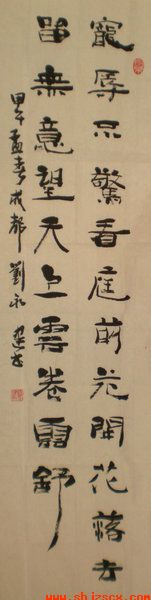 寵辱不驚看庭前花開花落去
留無意望天上雲卷雲舒
甲午孟春成都劉永
www.shjzscx.com